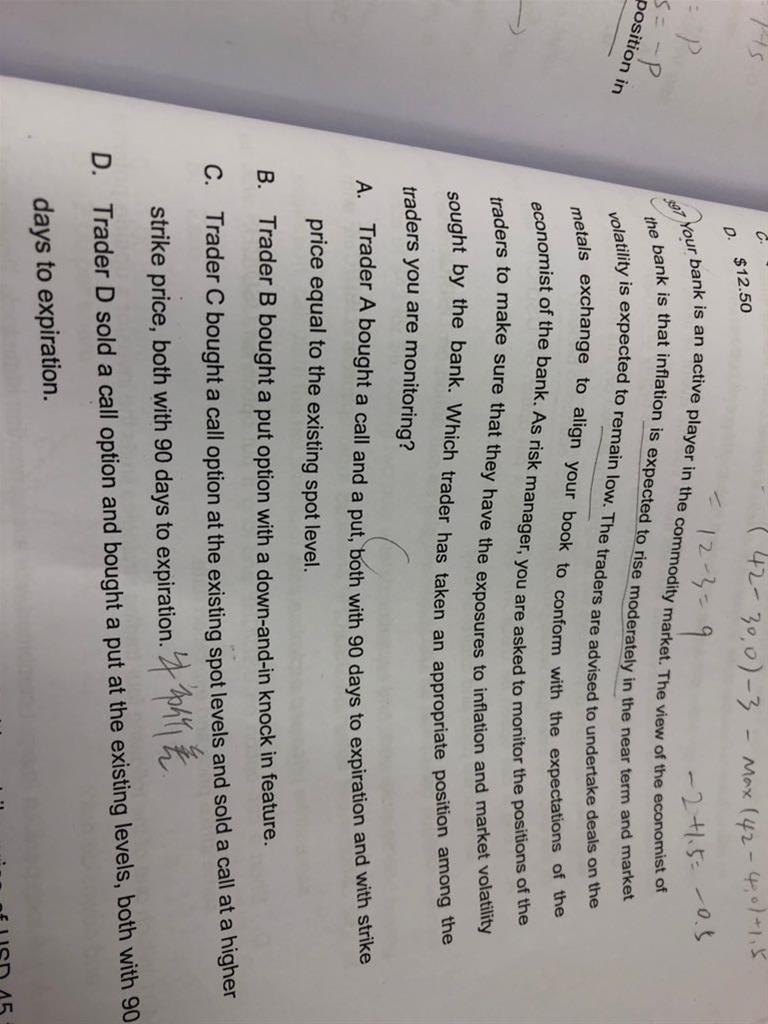 C.
(42-30,0)-3 - Max(42-40,0)+1.5
D. $12.50
= 12-3=9
-2+1.5= -0.5
397 Your bank is an active player in the commodity market. The view of the economist of
the bank is that inflation is expected to rise moderately in the near term and market
volatility is expected to remain low. The traders are advised to undertake deals on the
metals exchange to align your book to conform with the expectations of the
economist of the bank. As risk manager, you are asked to monitor the positions of the
traders to make sure that they have the exposures to inflation and market volatility
sought by the bank. Which trader has taken an appropriate position among the
traders you are monitoring?
A. Trader A bought a call and a put, both with 90 days to expiration and with strike
price equal to the existing spot level.
B. Trader B bought a put option with a down-and-in knock in feature.
C. Trader C bought a call option at the existing spot levels and sold a call at a higher
strike price, both with 90 days to expiration. 牛市价差
D. Trader D sold a call option and bought a put at the existing levels, both with 90
days to expiration.
of USD 45
= p
s = -p
position in